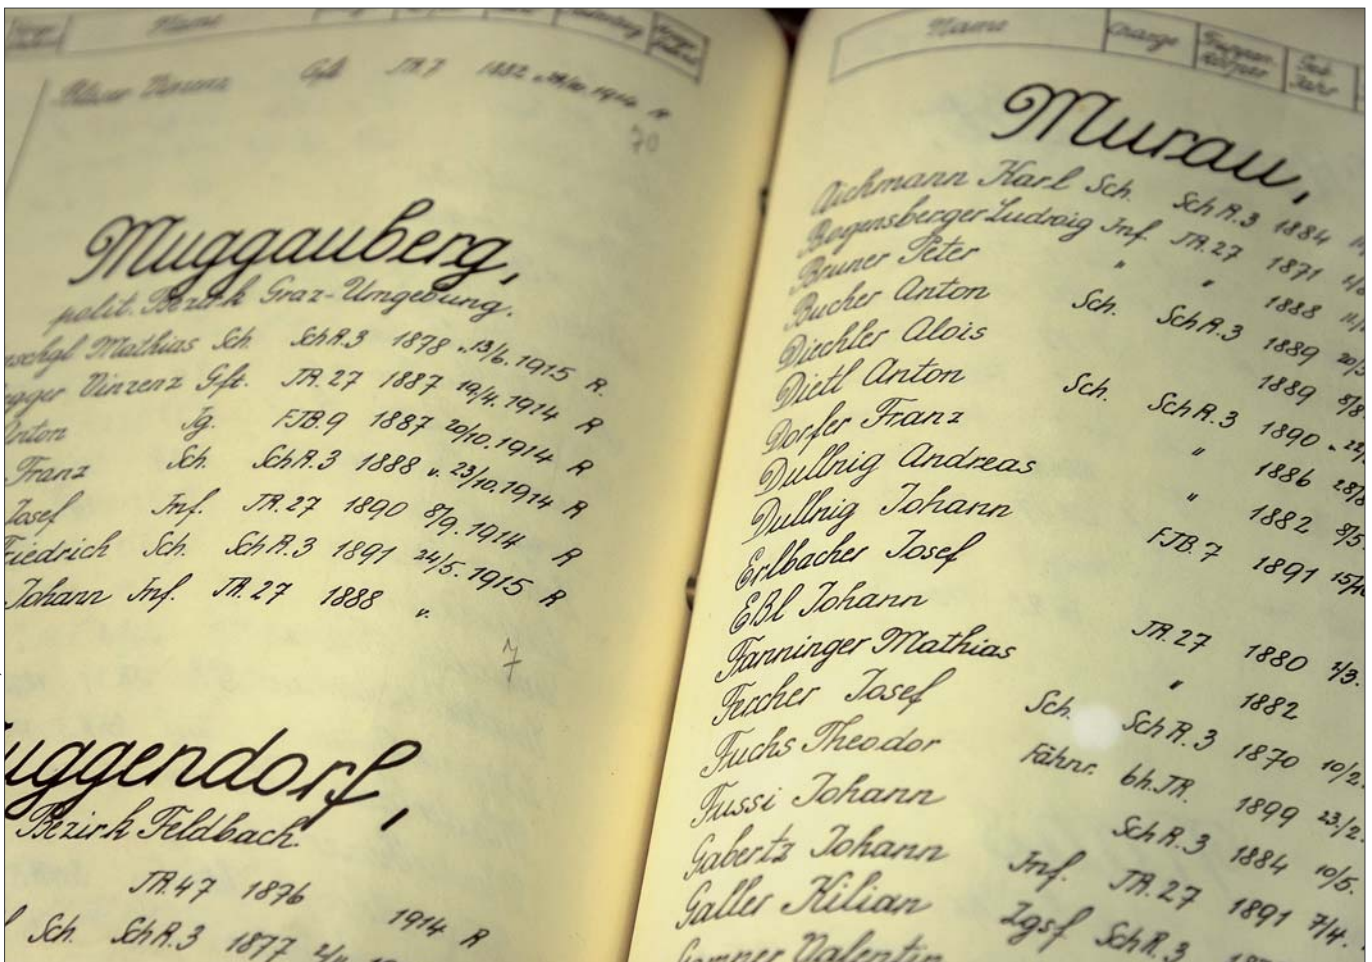 Name
Vinzenz Gft. IR.7 1882 1914 R
70
Muggauberg,
polit. Bezirk Graz-Umgebung.
Mathias Sch. SchR.3 1878 v.13/6.1915 R.
Vinzenz Gft. IR.27 1887 1914 R
Anton Jg. FJB.9 1887 20/10.1914 R
Franz Sch. SchR.3 1888 v. 23/10.1914 R
Josef Inf. IR.27 1890 8/9.1914 R
Friedrich Sch. SchR.3 1891 24/5.1915 R
Johann Inf. IR.27 1888 v.
7
uggendorf,
Bezirk Feldbach.
IR.47 1876 1914 R
Sch. SchR.3 1877
Name Charge Truppenkörper Geb. Jahr
Murau,
Aichmann Karl Sch. SchR.3 1884
Bogensberger Ludwig Inf. IR.27 1871
Bruner Peter " " 1888
Bucher Anton Sch. SchR.3 1889
Diechler Alois 1889 8/8
Dietl Anton Sch. SchR.3 1890
Dorfer Franz " 1886
Dullnig Andreas " 1882 8/5
Dullnig Johann FJB.7 1891
Erlbacher Josef
Eßl Johann IR.27 1880 1/3.
Fanninger Mathias " 1882
Fercher Josef Sch. SchR.3 1870 10/2.
Fuchs Theodor Fähnr. bh.IR. 1899 23/2.
Fussi Johann SchR.3 1884 10/5.
Gabertz Johann Inf. IR.27 1891 7/4.
Galler Kilian Zgsf SchR.3
Valentin